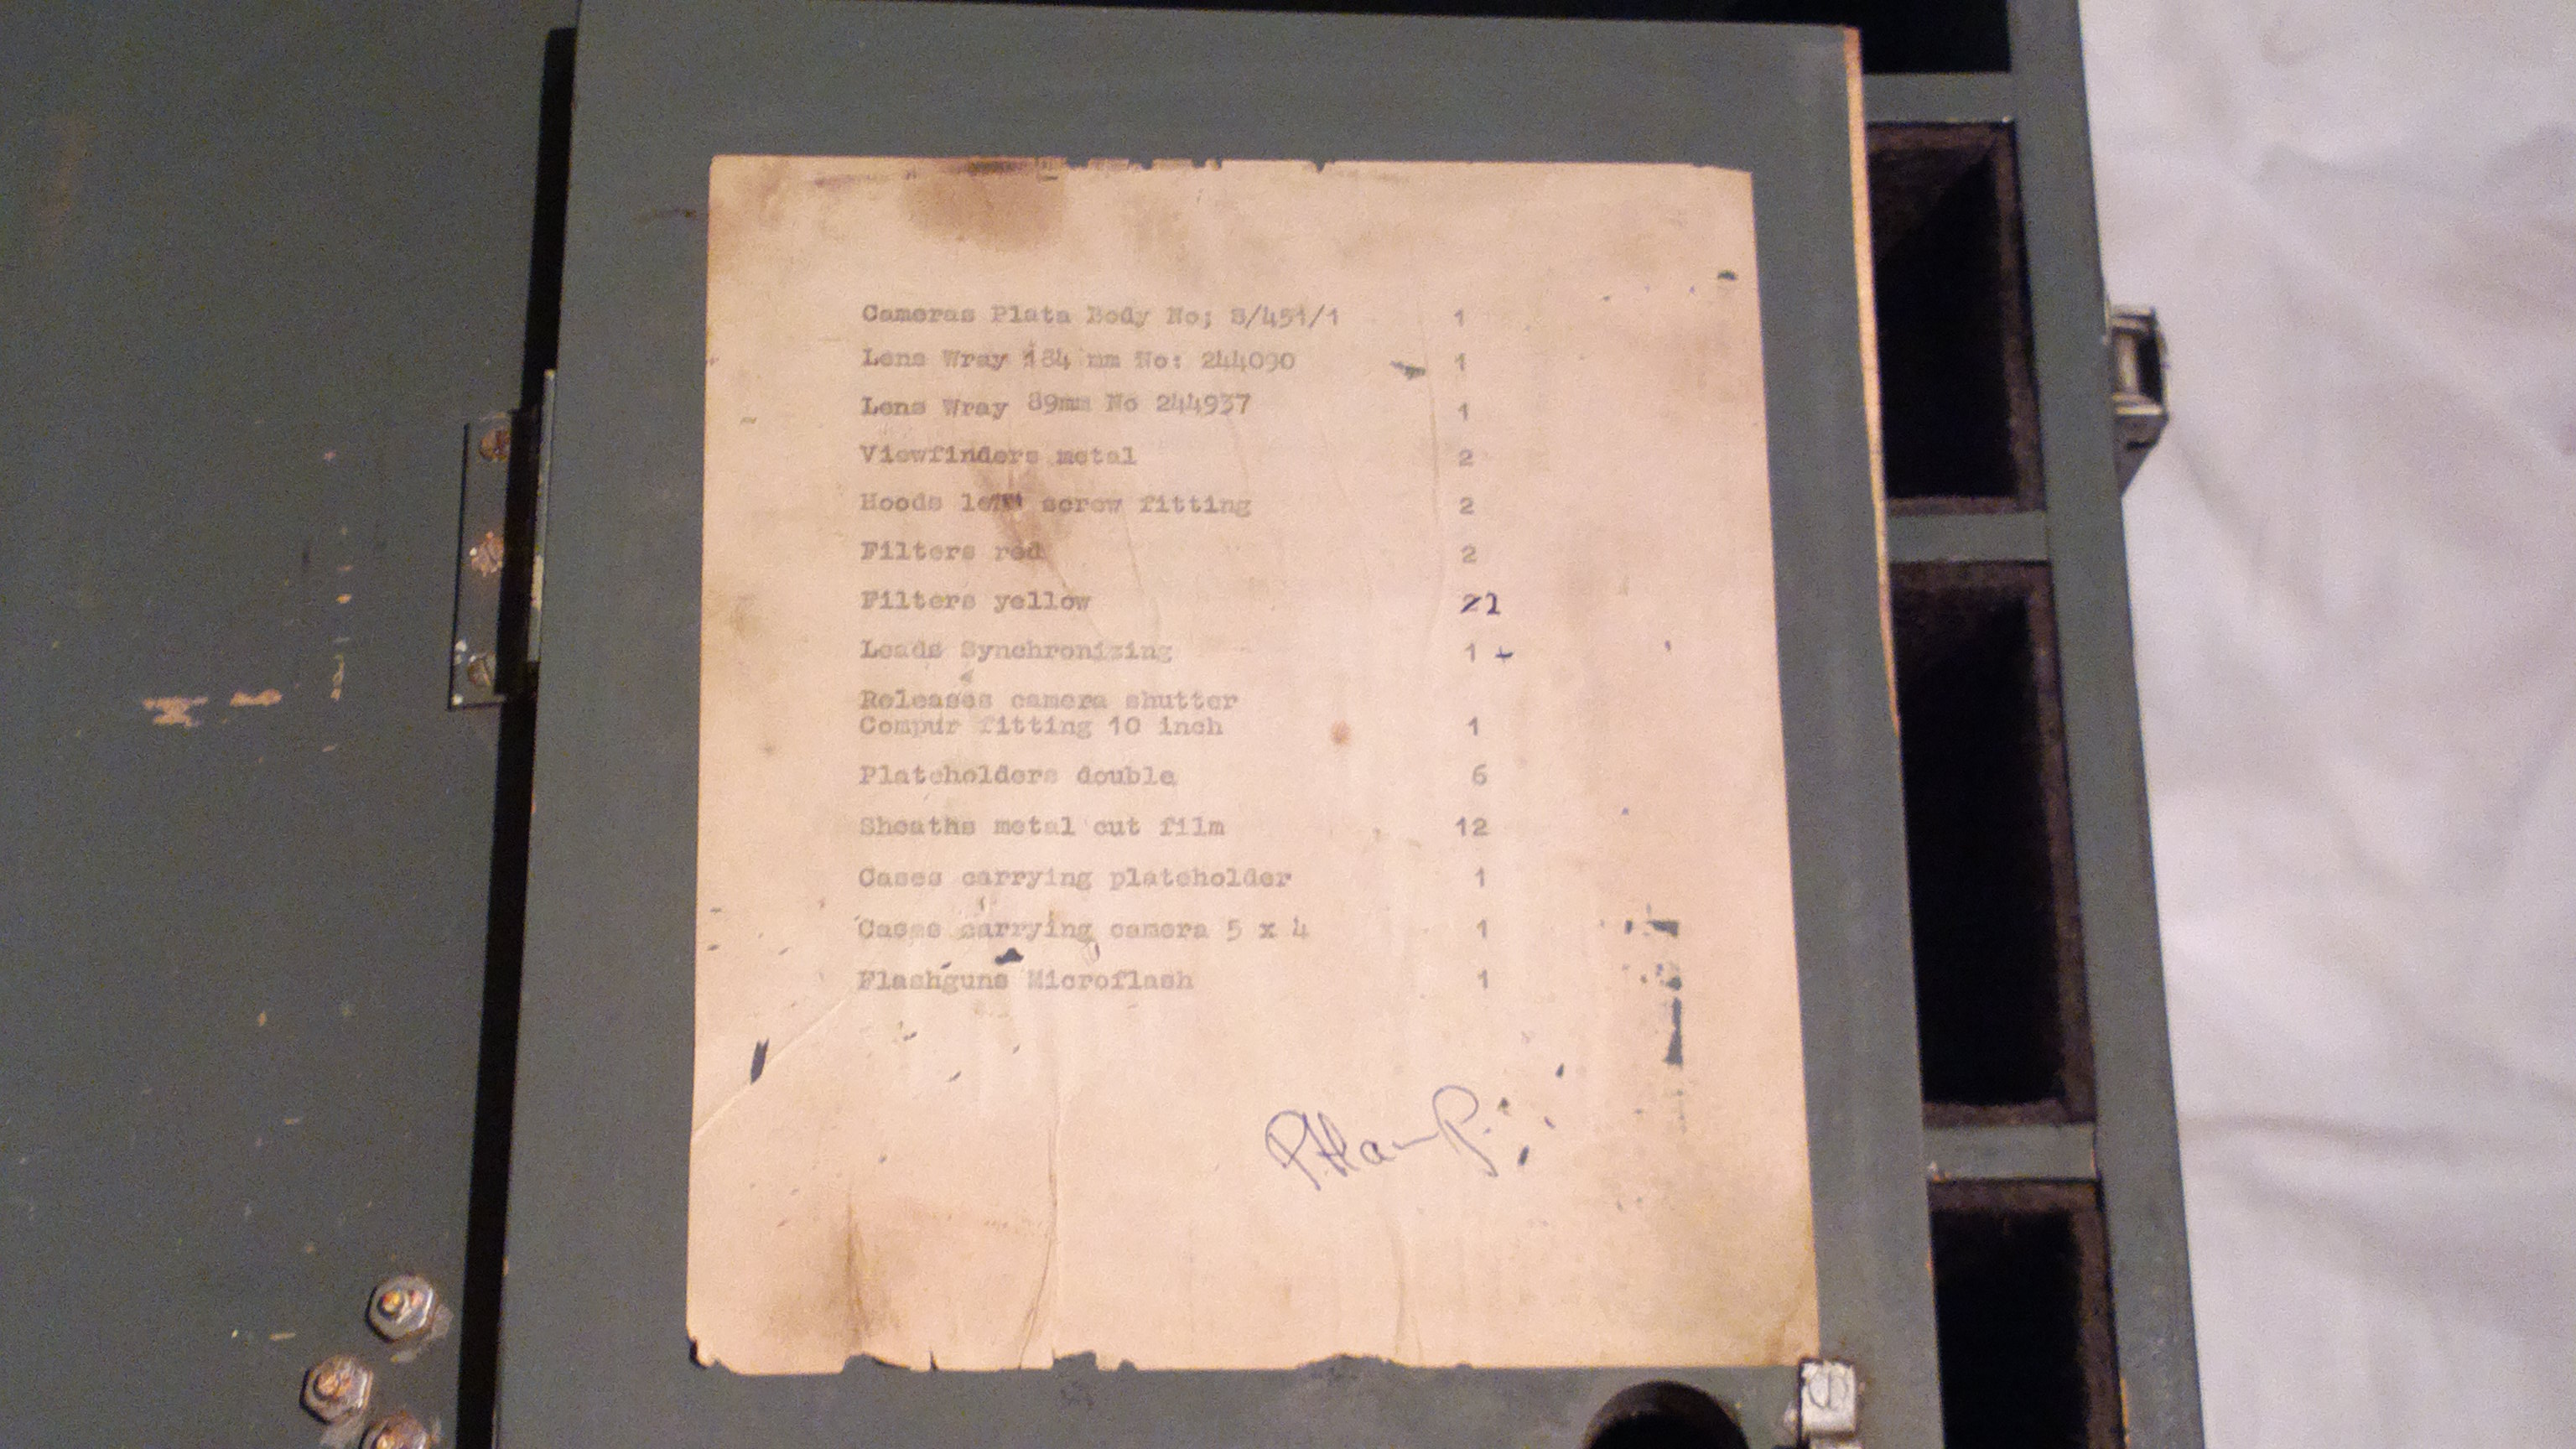 Cameras Plata Body No; S/451/1 1
Lens Wray 184 mm No: 244090 1
Lens Wray 89mm No 244937 1
Viewfinders metal 2
Hoods lens screw fitting 2
Filters red 2
Filters yellow 21
Leads Synchronizing 1
Releases camera shutter
Compur fitting 10 inch 1
Plateholders double 6
Sheaths metal cut film 12
Cases carrying plateholder 1
Cases carrying camera 5 x 4 1
Flashguns Microflash 1